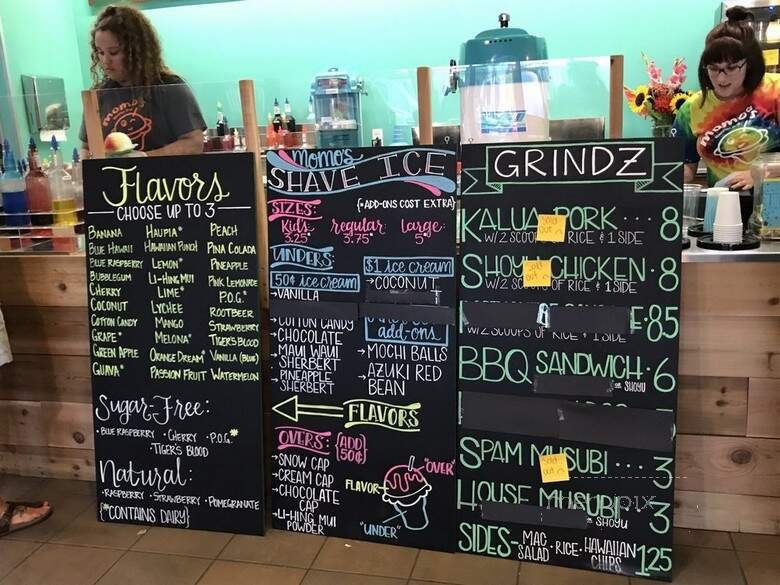 momo's
momo's
Flavors
CHOOSE UP TO 3
BANANA
BLUE HAWAII
BLUE RASPBERRY
BUBBLEGUM
CHERRY
COCONUT
COTTON CANDY
GRAPE*
GREEN APPLE
GUAVA*
HAUPIA*
HAWAIIAN PUNCH
LEMON*
LI-HING MUI
LIME*
LYCHEE
MANGO
MELONA*
ORANGE DREAM*
PASSION FRUIT
PEACH
PINA COLADA
PINEAPPLE
PINK LEMONADE
P.O.G.*
ROOTBEER
STRAWBERRY
TIGER'S BLOOD
VANILLA (BLUE)
WATERMELON
Sugar-Free:
• BLUE RASPBERRY • CHERRY • P.O.G*
• TIGER'S BLOOD
Natural:
• RASPBERRY • STRAWBERRY • POMEGRANATE
{*CONTAINS DAIRY}
MOMO'S
SHAVE ICE
SIZES:
(*ADD-ONS COST EXTRA)
kid's regular large
3.25 3.75 5
UNDERS:
50¢ ice cream
→VANILLA
COTTON CANDY
→CHOCOLATE
→MAUI WAUI
SHERBERT
→PINEAPPLE
SHERBERT
$1 ice cream
→COCONUT
add-ons:
→MOCHI BALLS
→AZUKI RED
BEAN
FLAVORS
OVERS: {ADD 50¢}
→SNOW CAP
→CREAM CAP
→CHOCOLATE
CAP
→LI-HING MUI
POWDER
"OVER"
FLAVOR→
"UNDER"
GRINDZ
KALUA PORK ... 8
W/2 SCOO RICE & 1 SIDE
sold out
SHOYU CHICKEN · 8
W/2 SC OF RICE & 1 SIDE
sold out
8.5
W/2 SCOOPS OF RICE & 1 SIDE
BBQ SANDWICH · 6
OR SHOYU
SPAM MUSUBI ... 3
sold out
HOUSE MUSUBI · 3
SHOYU
SIDES- MAC SALAD · RICE · HAWAIIAN CHIPS 1.25